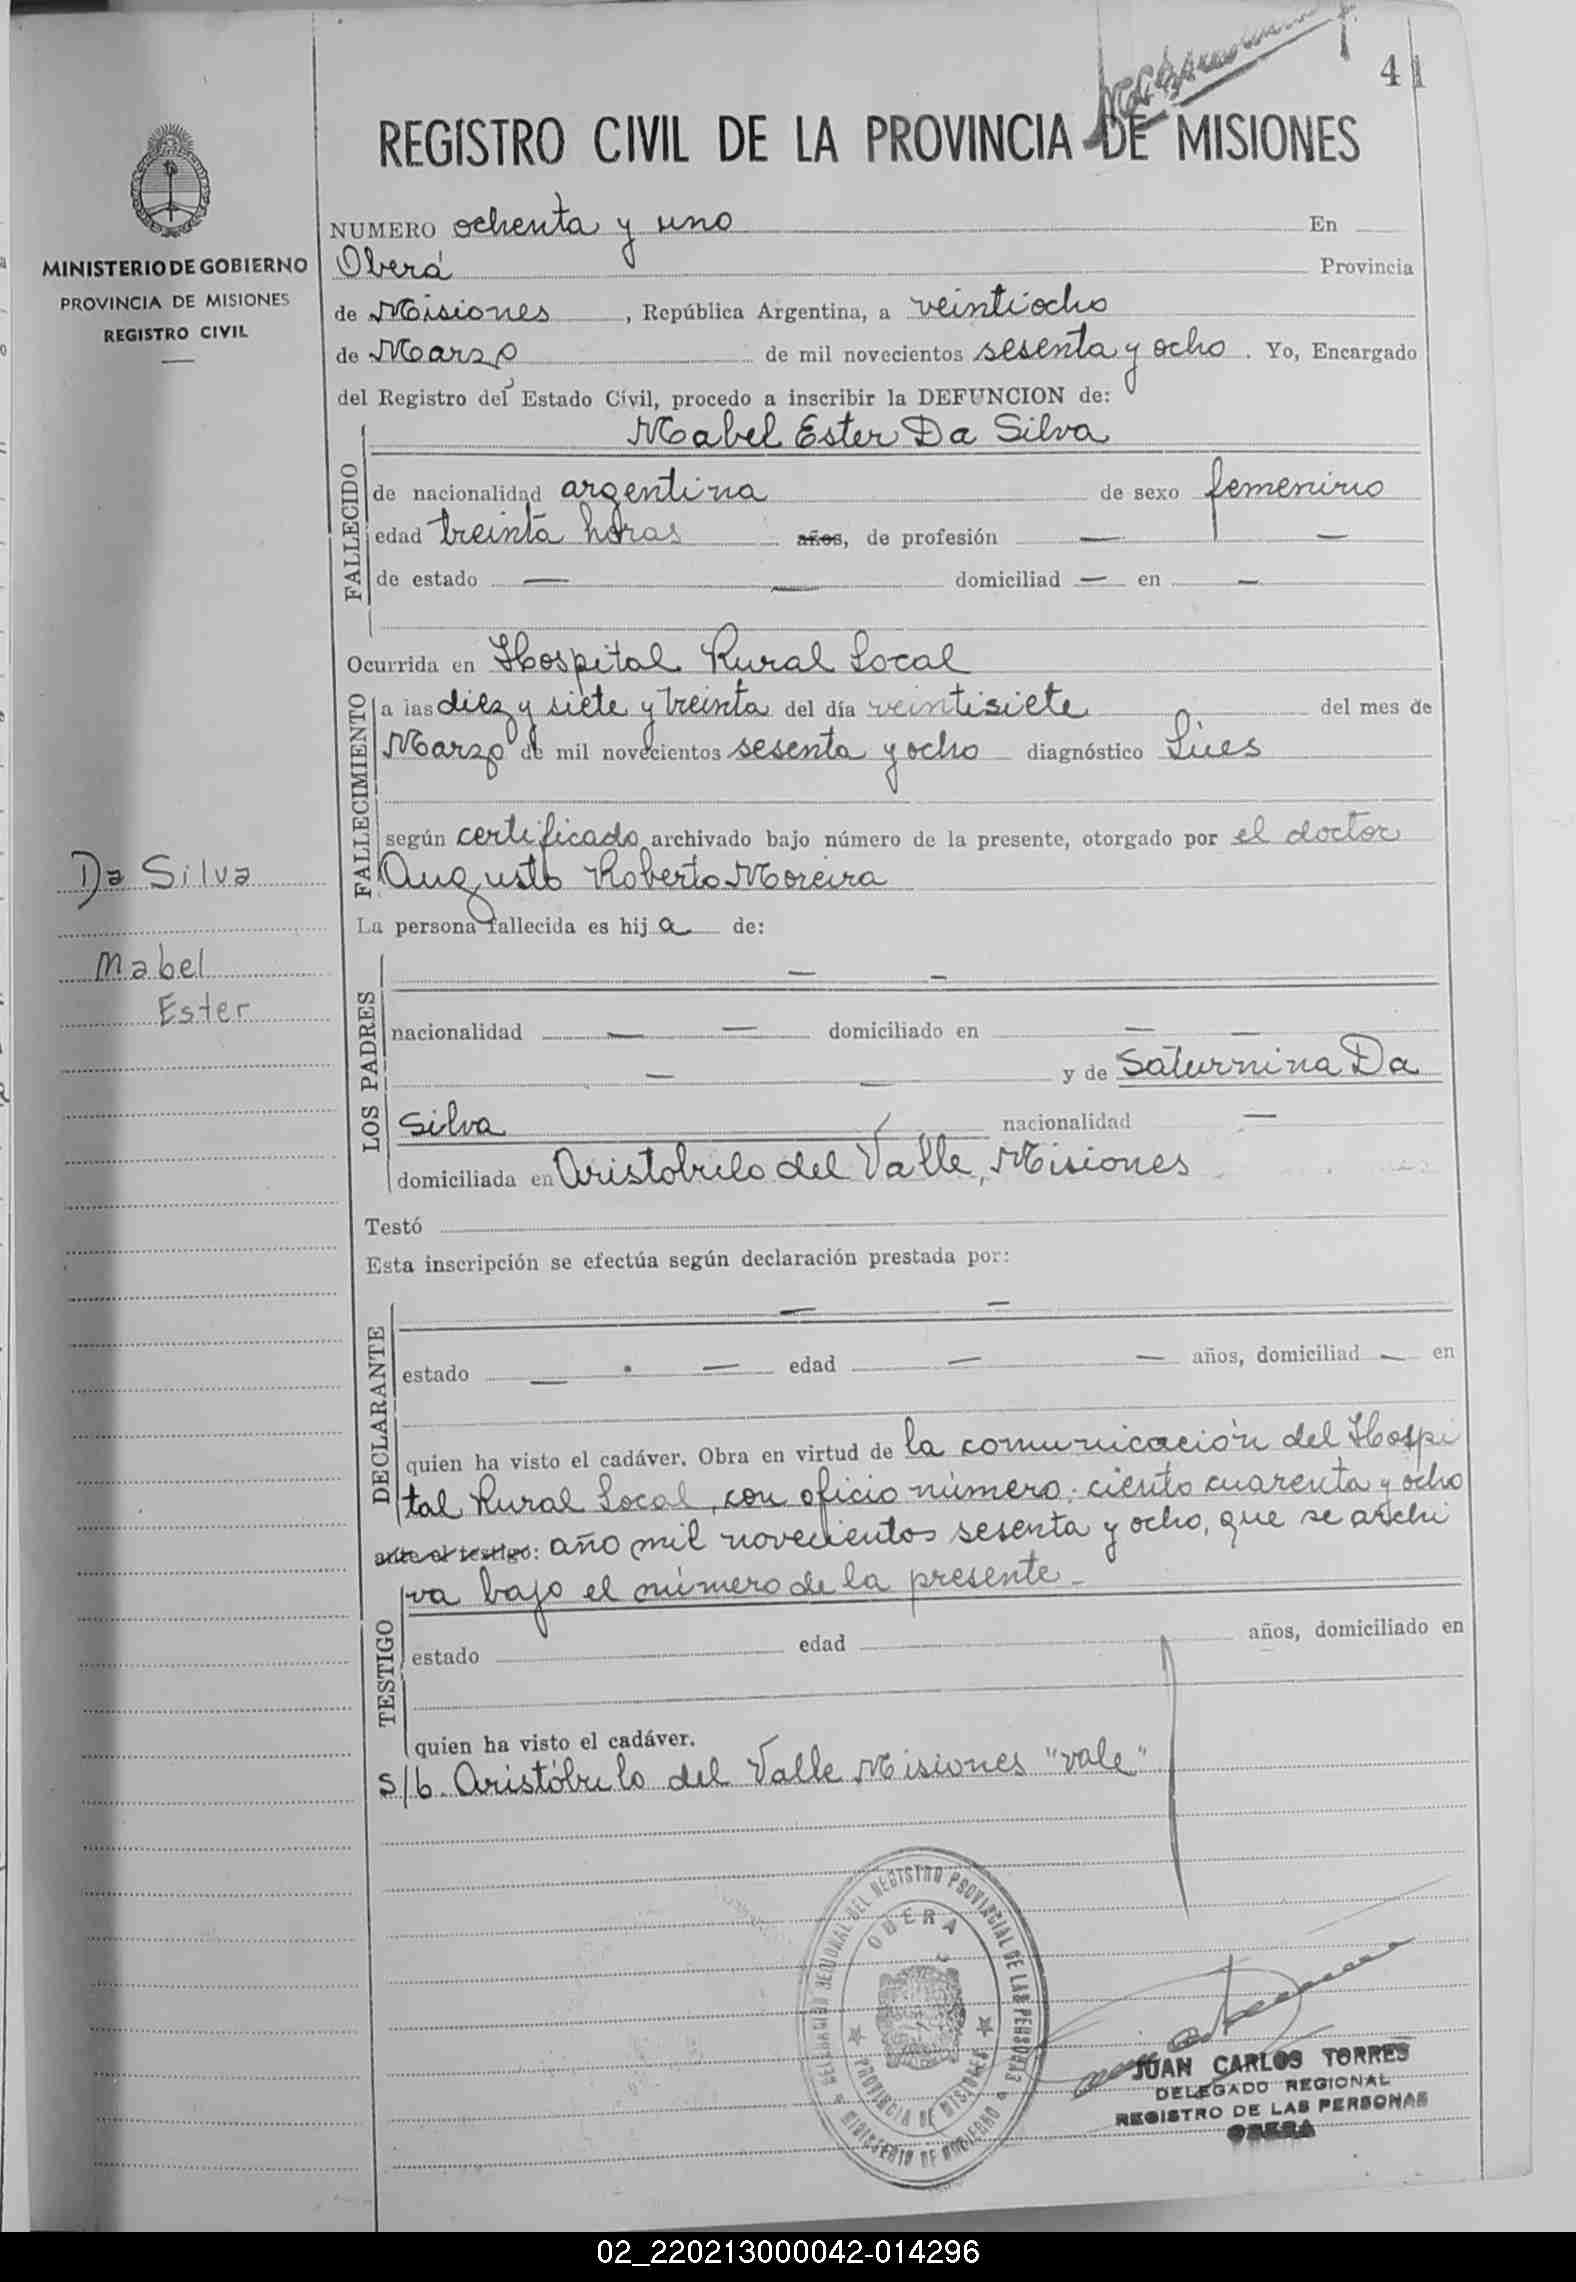 41
REGISTRO CIVIL DE LA PROVINCIA DE MISIONES
MINISTERIO DE GOBIERNO
PROVINCIA DE MISIONES
REGISTRO CIVIL
NUMERO ochenta y uno En
Oberá Provincia
de Misiones, República Argentina, a veintiocho
de Marzo de mil novecientos sesenta y ocho. Yo, Encargado
del Registro del Estado Civil, procedo a inscribir la DEFUNCION de:
Mabel Ester Da Silva
FALLECIDO
de nacionalidad argentina de sexo femenino
edad treinta horas años, de profesión — —
de estado — — domiciliad — en —
Ocurrida en Hospital Rural Local
FALLECIMIENTO
a las diez y siete y treinta del día veintisiete del mes de
Marzo de mil novecientos sesenta y ocho diagnóstico Lúes
según certificado archivado bajo número de la presente, otorgado por el doctor
Augusto Roberto Moreira
Da Silva
Mabel
Ester
La persona fallecida es hija de:
LOS PADRES
— —
nacionalidad — — domiciliado en — —
— — y de Saturnina Da
Silva nacionalidad —
domiciliada en Aristobulo del Valle, Misiones
Testó
Esta inscripción se efectúa según declaración prestada por:
DECLARANTE
— —
estado — — edad — — años, domiciliad — en
quien ha visto el cadáver. Obra en virtud de la comunicación del Hospi
tal Rural Local, con oficio número: ciento cuarenta y ocho
ante el testigo: año mil novecientos sesenta y ocho, que se archi
va bajo el número de la presente —
TESTIGO
estado edad años, domiciliado en
quien ha visto el cadáver.
s/b. Aristóbulo del Valle Misiones "vale"
OBERA
PROVINCIA DE MISIONES
MINISTERIO DE GOBIERNO
JUAN CARLOS TORRES
DELEGADO REGIONAL
REGISTRO DE LAS PERSONAS
OBERA
02_220213000042-014296